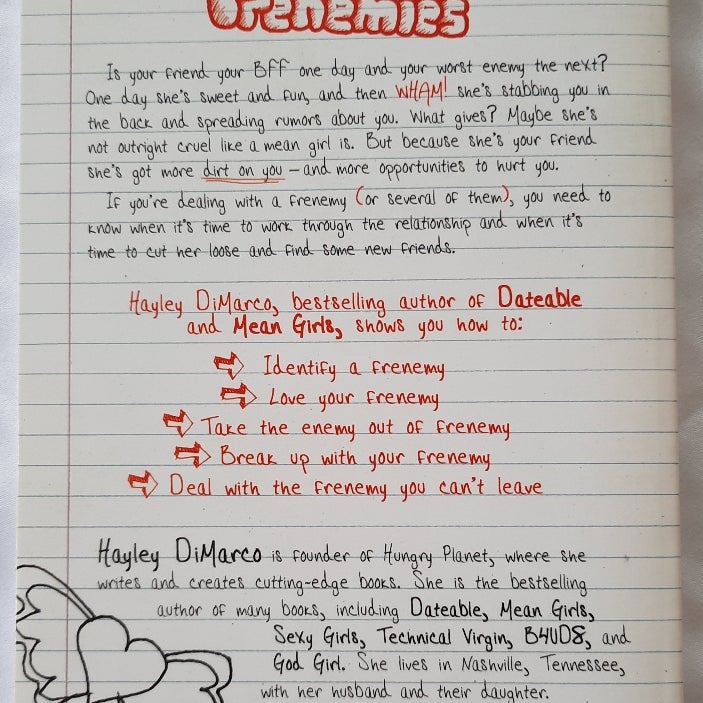 Frenemies
Is your friend your BFF one day and your worst enemy the next?
One day she's sweet and fun, and then WHAM! she's stabbing you in
the back and spreading rumors about you. What gives? Maybe she's
not outright cruel like a mean girl is. But because she's your friend
she's got more dirt on you – and more opportunities to hurt you.
If you're dealing with a frenemy (or several of them), you need to
know when it's time to work through the relationship and when it's
time to cut her loose and find some new friends.
Hayley DiMarco, bestselling author of Dateable
and Mean Girls, shows you how to:
Identify a frenemy
Love your frenemy
Take the enemy out of frenemy
Break up with your frenemy
Deal with the frenemy you can't leave
Hayley DiMarco is founder of Hungry Planet, where she
writes and creates cutting-edge books. She is the bestselling
author of many books, including Dateable, Mean Girls,
Sexy Girls, Technical Virgin, B4UD8, and
God Girl. She lives in Nashville, Tennessee,
with her husband and their daughter.